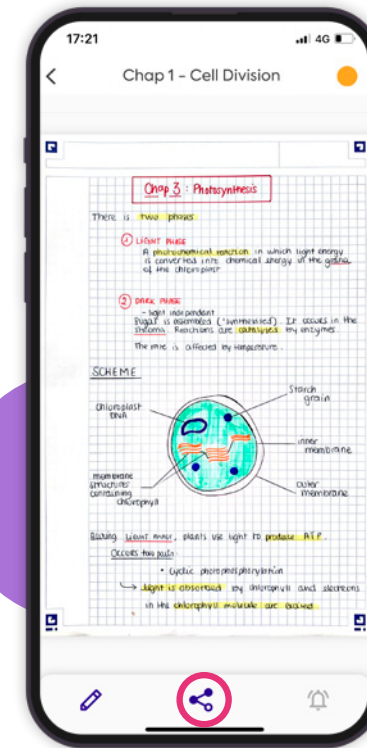 17:21 4G
Chap 1 - Cell Division
Chap 3 : Photosynthesis
There is two phases
1 LIGHT PHASE
A photochemical reaction in which light energy
is converted into chemical energy in the grana
of the chloroplast
2 DARK PHASE
- light independent
Sugar is assembled ("synthesized"). It occurs in the
stroma. Reactions are catalyzed by enzymes.
The rate is affected by temperature.
SCHEME
Chloroplast
DNA
Starch
grain
inner
membrane
membrane
structures
containing
chlorophyll
outer
membrane
During LIGHT PHASE, plants use light to produce ATP.
Occurs two path
• Cyclic photophosphorylation
↳ Light is absorbed by chlorophyll and electrons
in the chlorophyll molecule are excited